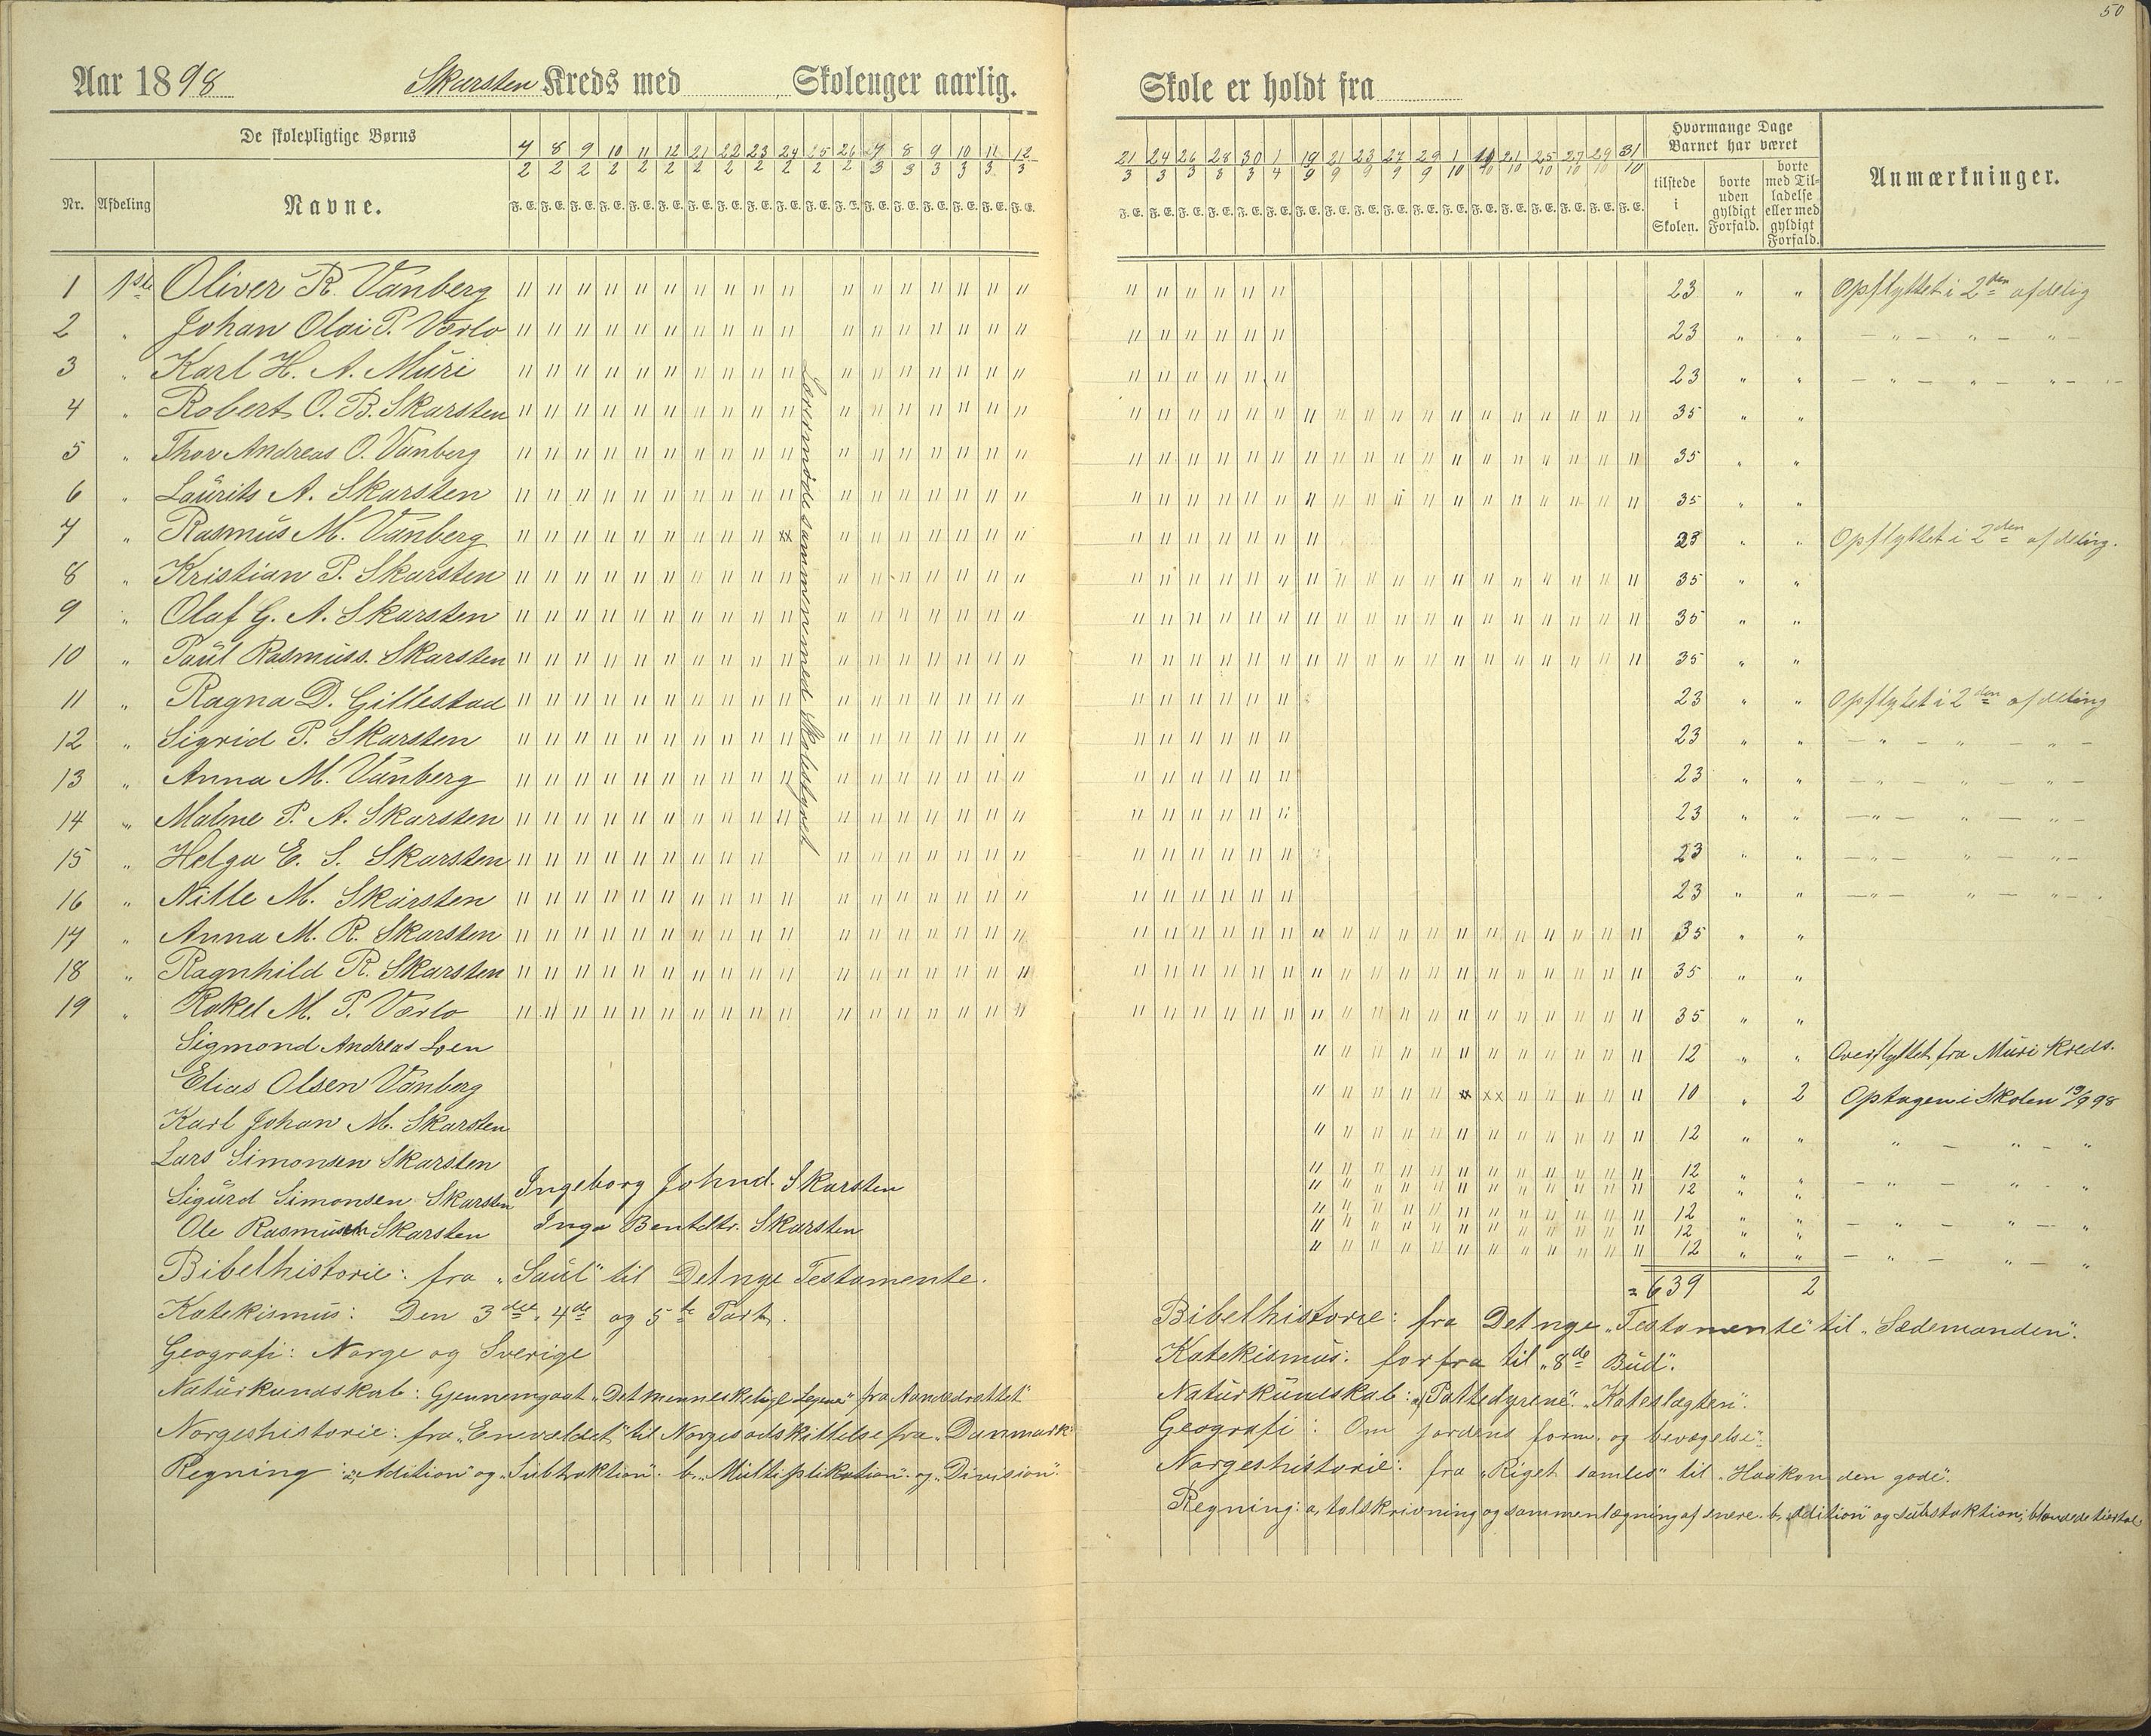 50
Aar 1898 Skarsten Kreds med Skoleuger aarlig. Skole er holdt fra
De skolepligtige Børns
Nr. Afdeling Navne.
7/2 8/2 9/2 10/2 11/2 12/2 21/2 22/2 23/2 24/2 25/2 26/2 7/3 8/3 9/3 10/3 11/3 12/3
F. E. F. E. F. E. F. E. F. E. F. E. F. E. F. E. F. E. F. E. F. E. F. E. F. E. F. E. F. E. F. E. F. E. F. E.
21/3 24/3 26/3 28/3 30/3 1/4 19/9 21/9 23/9 27/9 29/9 1/10 19/10 21/10 25/10 27/10 29/10 31/10
F. E. F. E. F. E. F. E. F. E. F. E. F. E. F. E. F. E. F. E. F. E. F. E. F. E. F. E. F. E. F. E. F. E. F. E.
Hvormange Dage Barnet har været
tilstede i Skolen.
borte uden gyldigt Forfald.
borte med Tilladelse eller med gyldigt Forfald.
Anmærkninger.
1 1ste Oliver R. Vanberg 23 " " Opflyttet i 2den afdelig
2 " Johan Olai P. Værlo 23 " " — " — " — " —
3 " Karl H. A. Muri 23 " " — " — " — " —
4 " Robert O. B. Skarsten 35 " "
5 " Thor Andreas O. Vanberg 35 " "
6 " Laurits A. Skarsten 35 " "
7 " Rasmus M. Vanberg 23 " " Opflyttet i 2den afdeling.
8 " Kristian P. Skarsten 35 " "
9 " Olaf G. A. Skarsten 35 " "
10 " Paul Rasmuss. Skarsten 35 " "
11 " Ragna D. Gillestad 23 " " Opflytet i 2den afdeling
12 " Sigrid P. Skarsten 23 " " — " — " — " —
13 " Anna M. Vanberg 23 " " — " — " — " —
14 " Malene P. A. Skarsten 23 " " — " — " — " —
15 " Helga E. S. Skarsten 23 " " — " — " — " —
16 " Nille M. Skarsten 23 " " — " — " — " —
17 " Anna M. R. Skarsten 35 " "
18 " Ragnhild R. Skarsten 35 " "
19 " Rakel M. P. Værlo 35 " "
Lærermøde sammen med Skolestyret
Sigmond Andreas Loen 12 " " Overflyttet fra Muri kreds.
Elias Olsen Vanberg 10 " 2 Optagen i Skolen 19/9 98
Karl Johan M. Skarsten 12 " " " — " — "
Lars Simonsen Skarsten 12 " "
Sigurd Simonsen Skarsten 12 " " — " — " — "
Ole Rasmusen Skarsten 12 " " — " — " — "
Ingeborg Johnd. Skarsten 12 " "
Inga Bentdtr. Skarsten 12 " " — " — " — "
= 639 2
Bibelhistorie: fra "Saul" til Det nye Testamente.
Katekismus: Den 3die, 4de og 5te Part.
Geografi: Norge og Sverige
Naturkundskab: Gjennemgaat "Det menneskelige Legeme" fra Aandedrættet"
Norgeshistorie: fra "Enevældet" til Norges adskillelse fra "Danmark"
Regning: a, "Adition" og "Subtraktion". b, "Multiplikation". og "Division".
Bibelhistorie: fra Det nye "Testamente" til "Sædemanden".
Katekismus: forfra til "8de Bud".
Naturkundskab: a, "Pattedyrene". "Kateslægten".
Geografi: Om jordens form og bevægelse".
Norgeshistorie: fra "Riget samles" til "Haakon den gode".
Regning: a, talskrivning og sammenlægning af enere. b, Adition" og subtraktion;